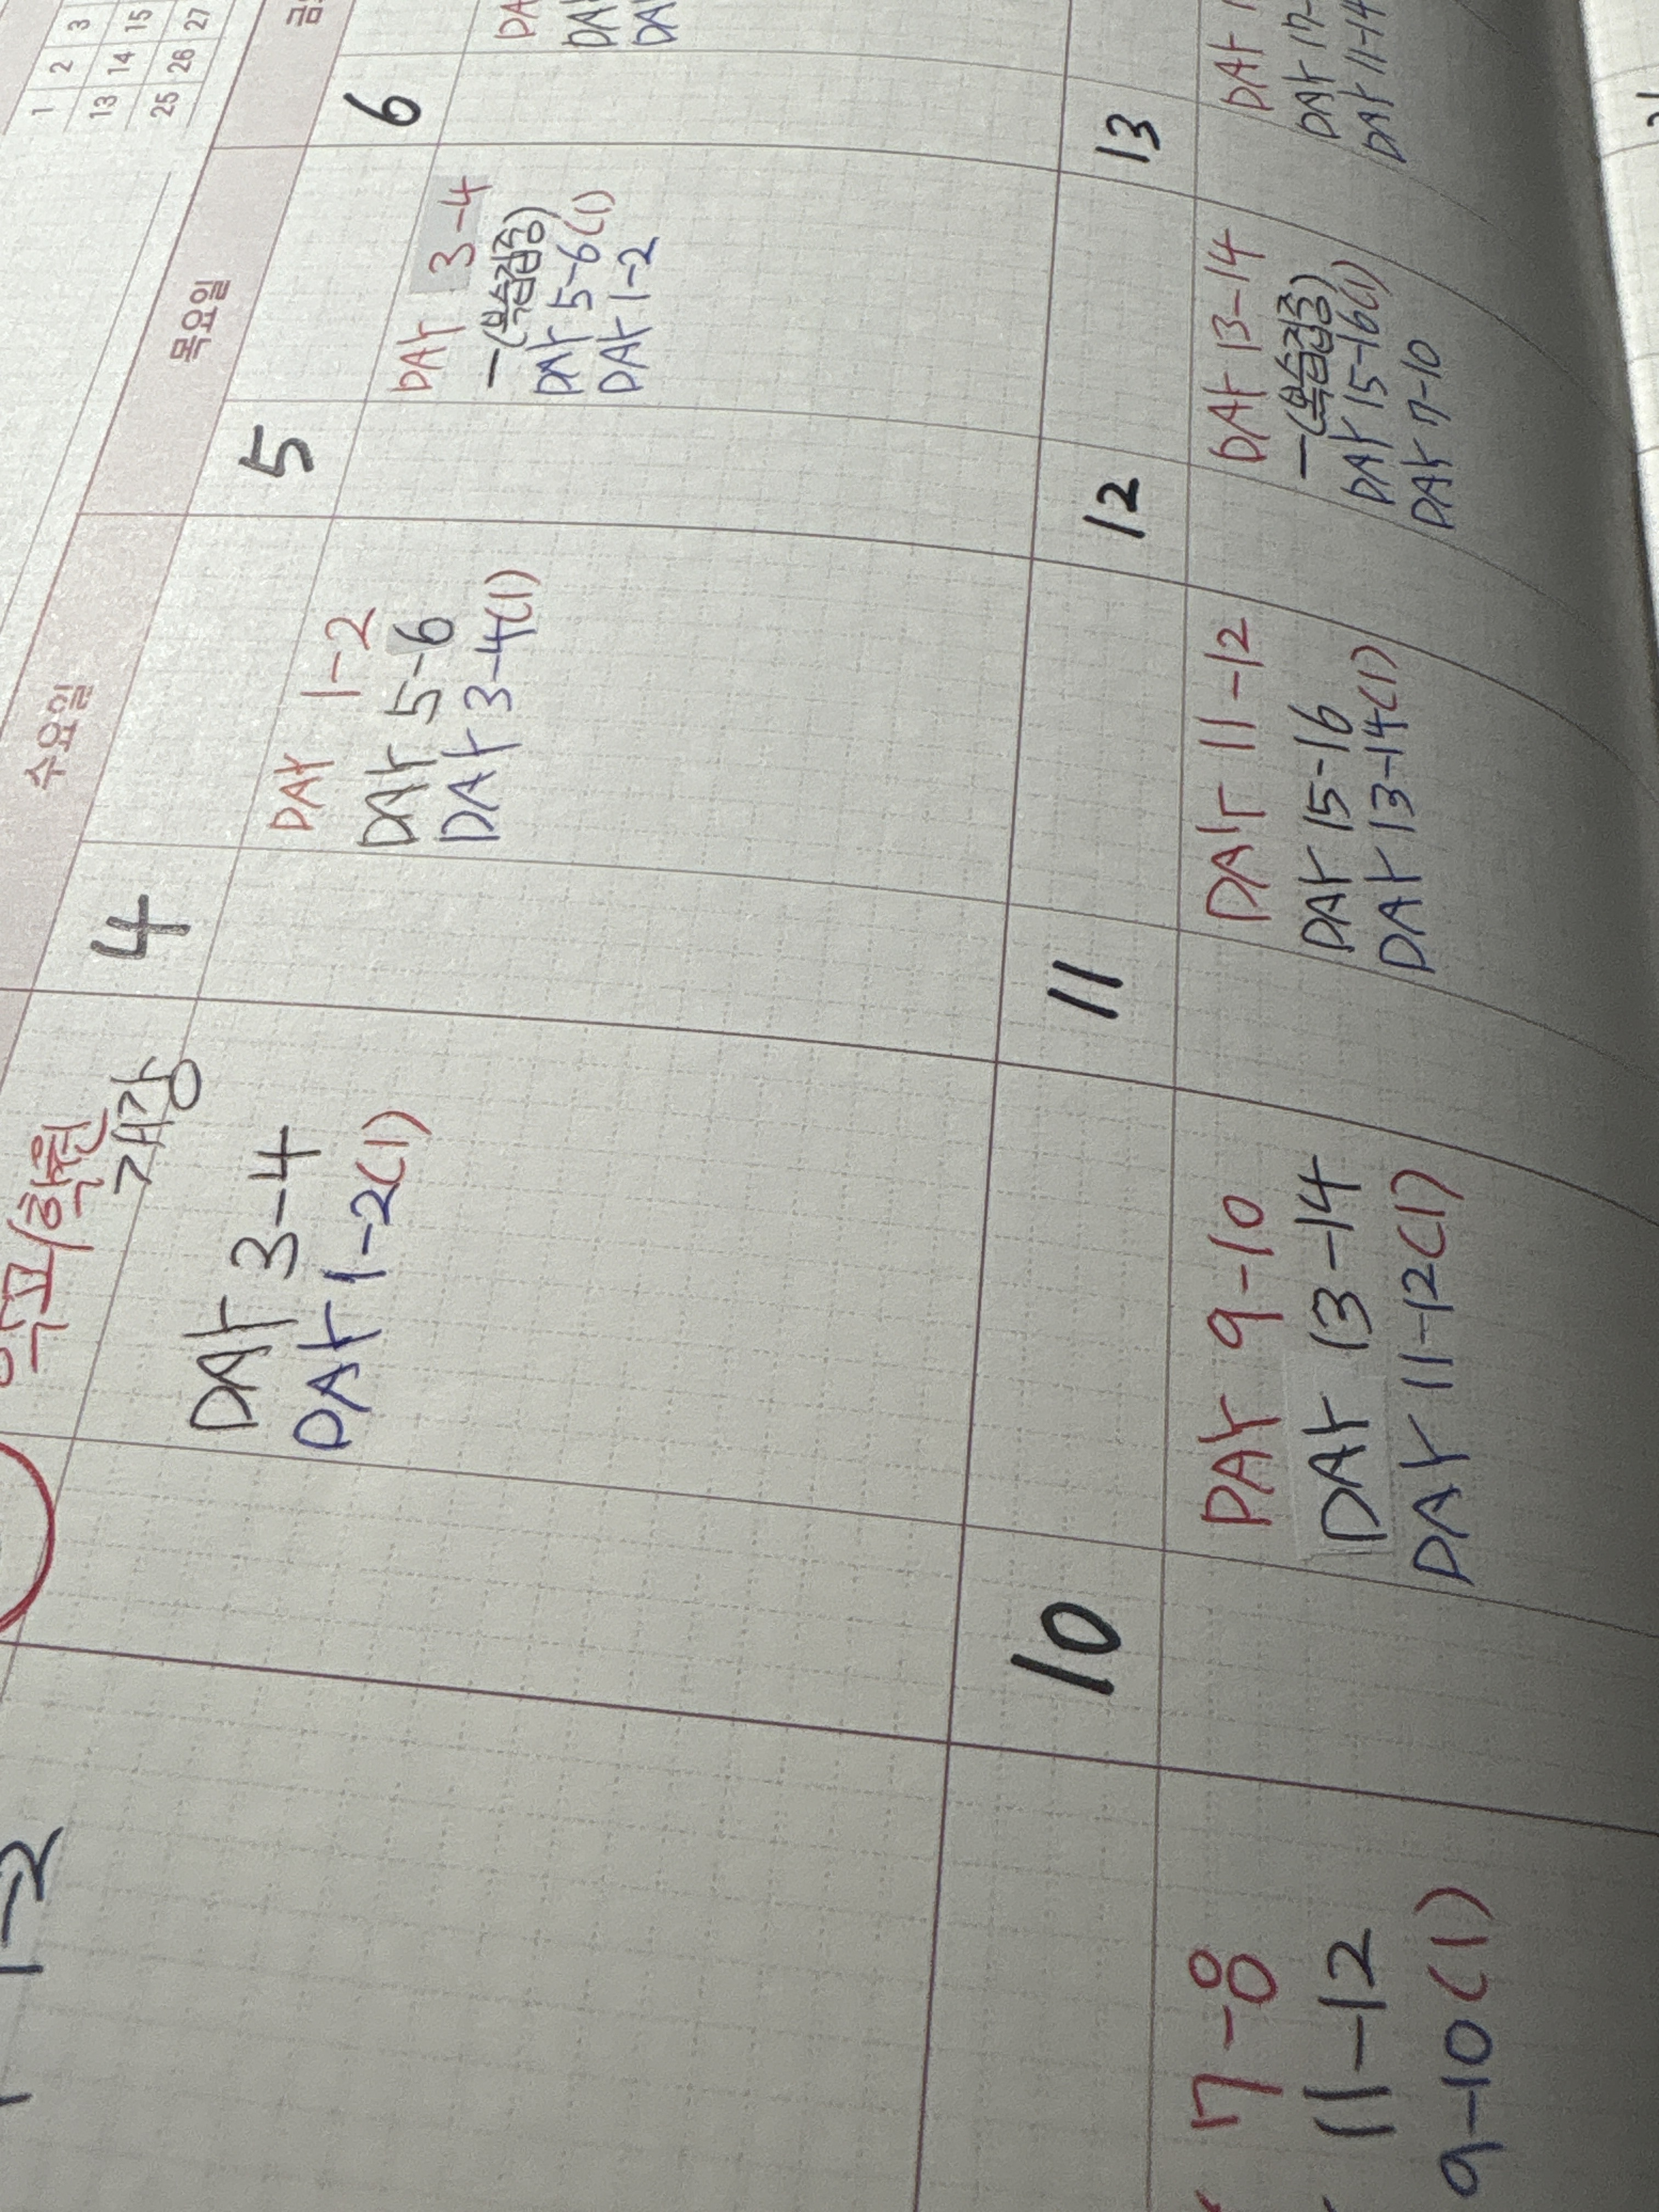 1 2 3
13 14 15
25 26 27
수요일
목요일
1-2
/학원
개강
DAY 3-4
DAY 1-2(1)
4
DAY 1-2
DAY 5-6
DAY 3-4(1)
5
DAY 3-4
-(복습집중)
DAY 5-6(1)
DAY 1-2
6
7-8
11-12
9-10(1)
10
DAY 9-10
DAY 13-14
DAY 11-12(1)
11
DAY 11-12
DAY 15-16
DAY 13-14(1)
12
DAY 13-14
-(복습집중)
DAY 15-16(1)
DAY 7-10
13
DAY 1
DAY 17-
DAY 11-14